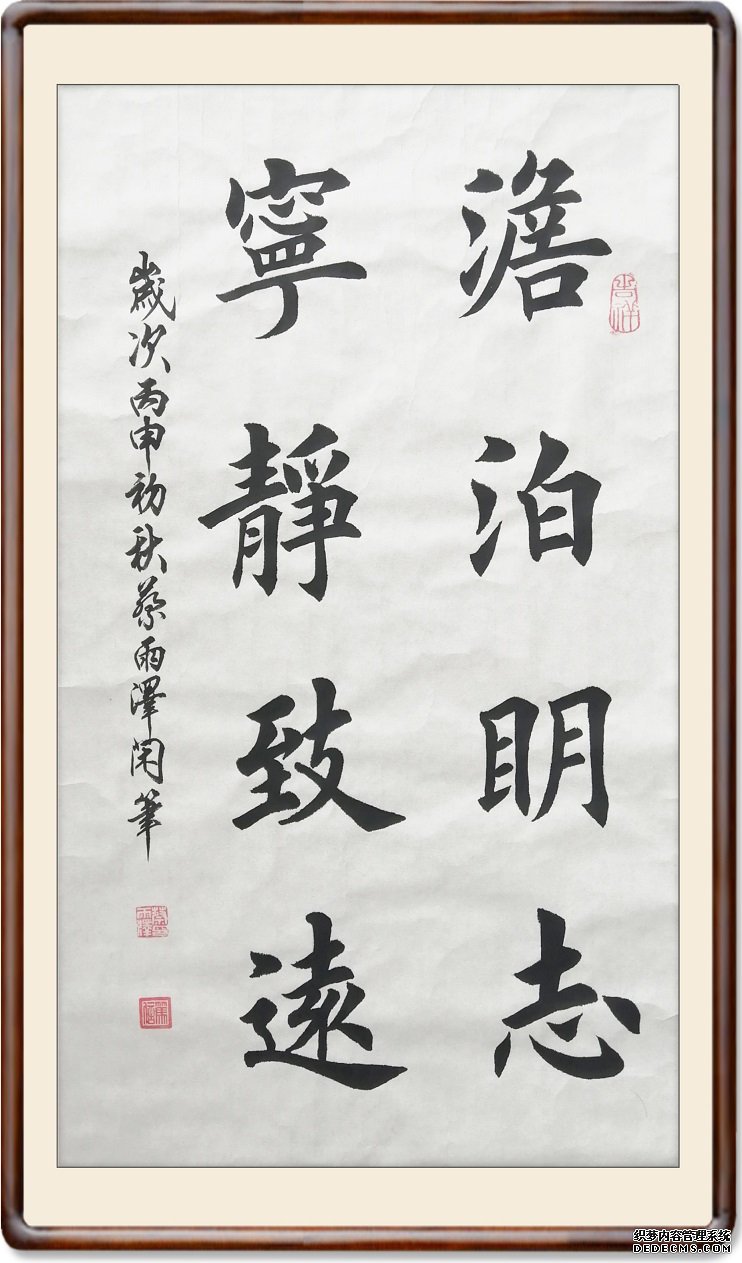 澹泊眀志
寧靜致遠
歲次丙申初秋蔡雨澤閑筆
吉祥
织梦内容管理系统
DEDECMS.COM